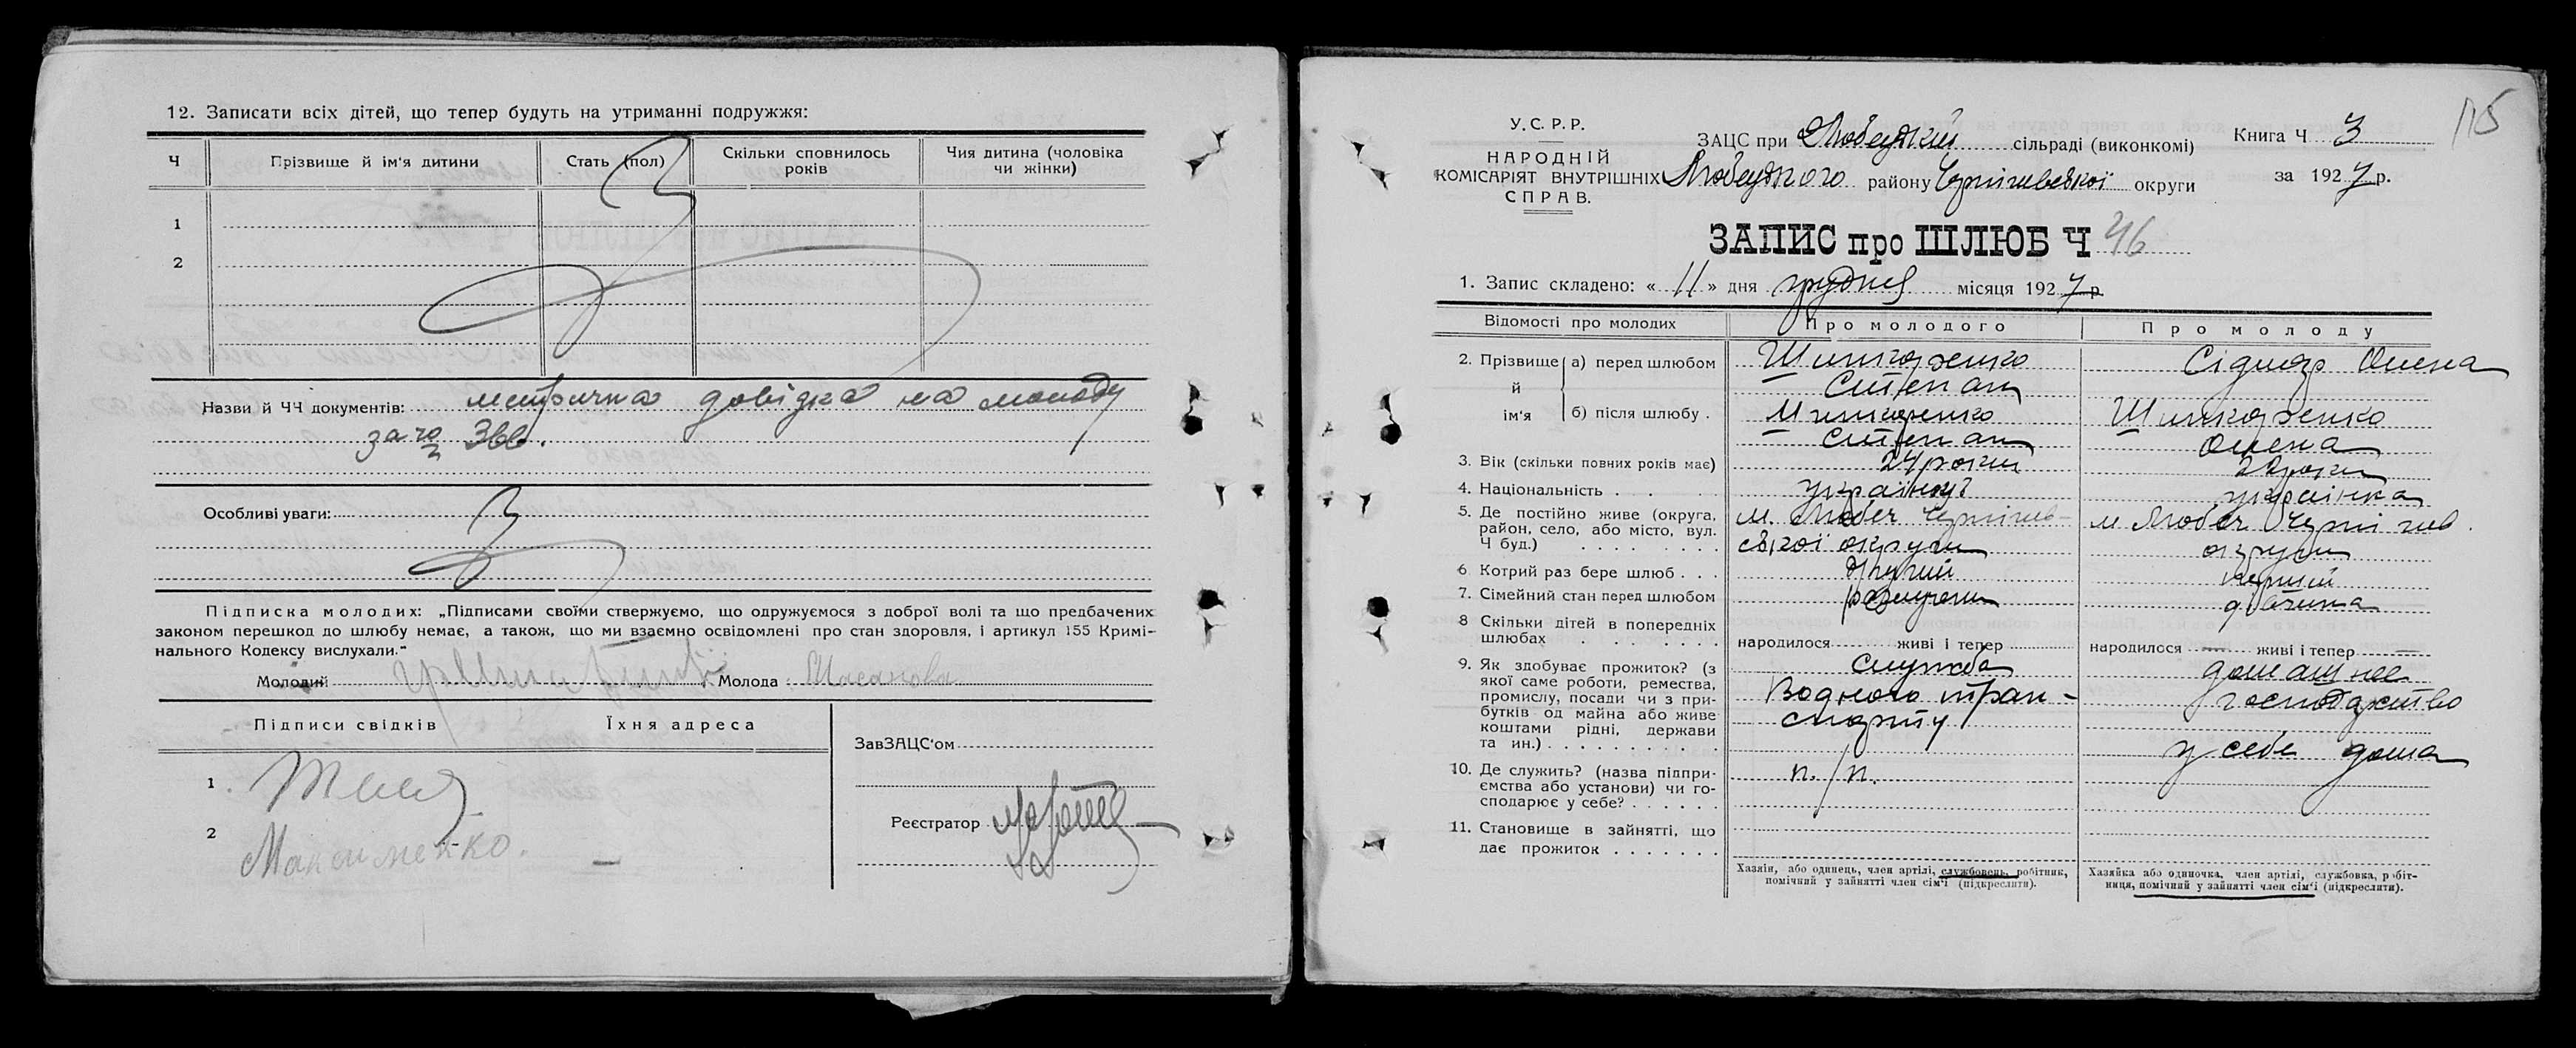 12. Записати всіх дітей, що тепер будуть на утриманні подружжя:
Ч
Прізвище й ім'я дитини
Стать (пол)
Скільки сповнилось років
Чия дитина (чоловіка чи жінки)
1
2
Назви й ЧЧ документів: метрична довідка на молоду
за № 366.
Особливі уваги:
Підписка молодих: „Підписами своїми стверджуємо, що одружуємося з доброї волі та що предбачених
законом перешкод до шлюбу немає, а також, що ми взаємно освідомлені про стан здоров'я, і артикул 155 Кримі-
нального Кодексу вислухали."
Молодий
Молода
Підписи свідків
Їхня адреса
ЗавЗАЦС'ом
1
Реєстратор
2
Максименко.
115
У.С.Р.Р.
НАРОДНІЙ
КОМІСАРІЯТ ВНУТРІШНІХ
СПРАВ.
ЗАЦС при Любецький сільраді (виконкомі)
Любецького району Чернігівської округи
Книга Ч 3
за 1927 р.
ЗАПИС про ШЛЮБ Ч 46
1. Запис складено: « 11 » дня грудня місяця 1927 р.
Відомості про молодих
Про молодого
Про молоду
2. Прізвище й ім'я
а) перед шлюбом
Степан
Олена
б) після шлюбу
Степан
Олена
3. Вік (скільки повних років має)
24 роки
22 роки
4. Національність
українка
5. Де постійно живе (округа, район, село, або місто, вул. Ч буд.)
м. Любеч Чернігів-
ської округи
м Любеч Чернігів.
округи
6 Котрий раз бере шлюб
другий
перший
7. Сімейний стан перед шлюбом
дівчина
8 Скільки дітей в попередніх шлюбах
народилося живі і тепер
народилося — живі і тепер —
9. Як здобуває прожиток? (з якої саме роботи, ремества, промислу, посади чи з прибутків од майна або живе коштами рідні, держави та ин.)
служба
Водного тран-
спорту
домашнее
господарство
10. Де служить? (назва підприємства або установи) чи господарює у себе?
п./п.
у себе дома
11. Становище в зайнятті, що дає прожиток
Хазяїн, або одинець, член артілі, службовець, робітник,
помічний у зайнятті член сім'ї (підкреслити).
Хазяйка або одиночка, член артілі, службовка, робіт-
ниця, помічний у зайнятті член сім'ї (підкреслити).